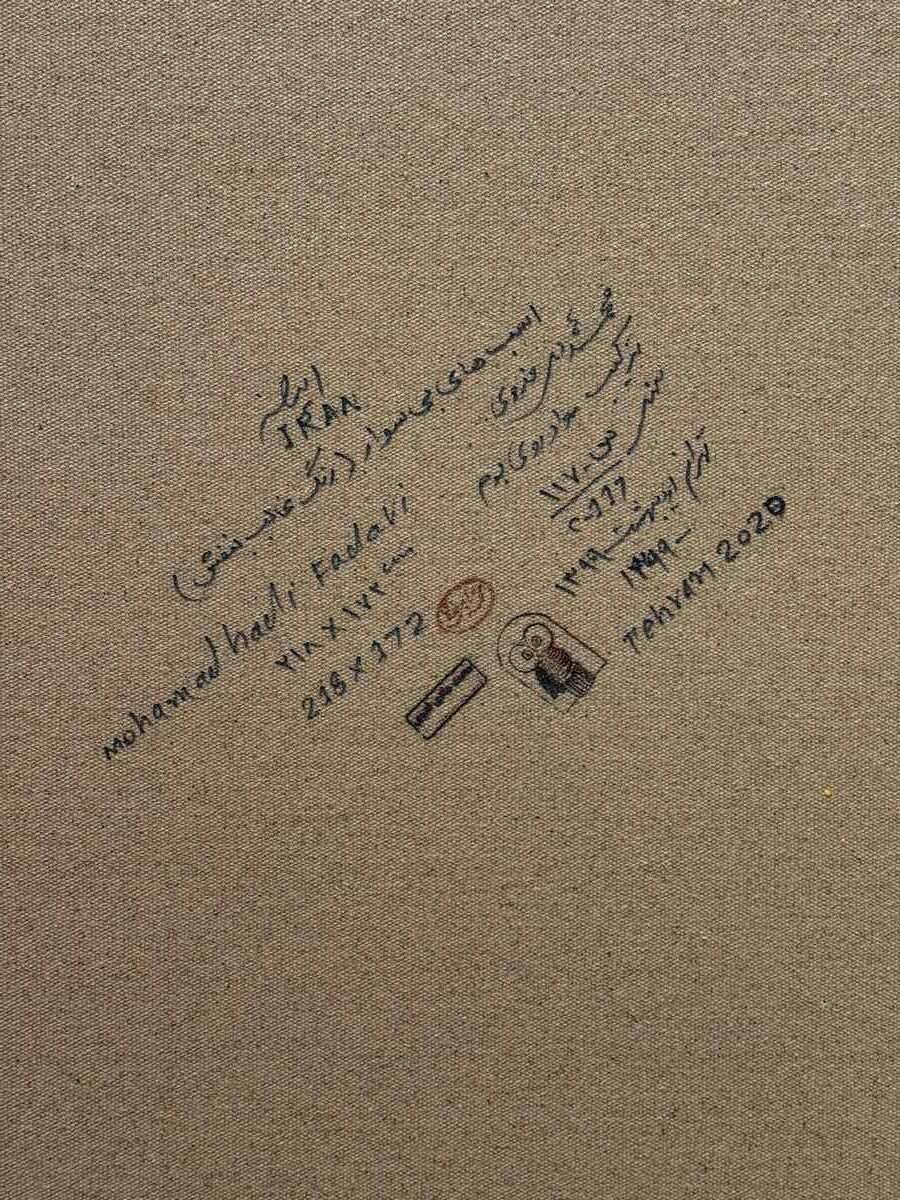 ایران
IRAN
اسب های بی سوار (رنگ غالب بنفش)
mohamad hadi Fadavi
۲۱۸ × ۱۷۲ cm
218 × 172
محمد هادی فدوی
ترکیب مواد روی بوم
ص - ۱۱۷
اردیبهشت ۱۳۹۹
۱۳۹۹ -
Tehran 2020